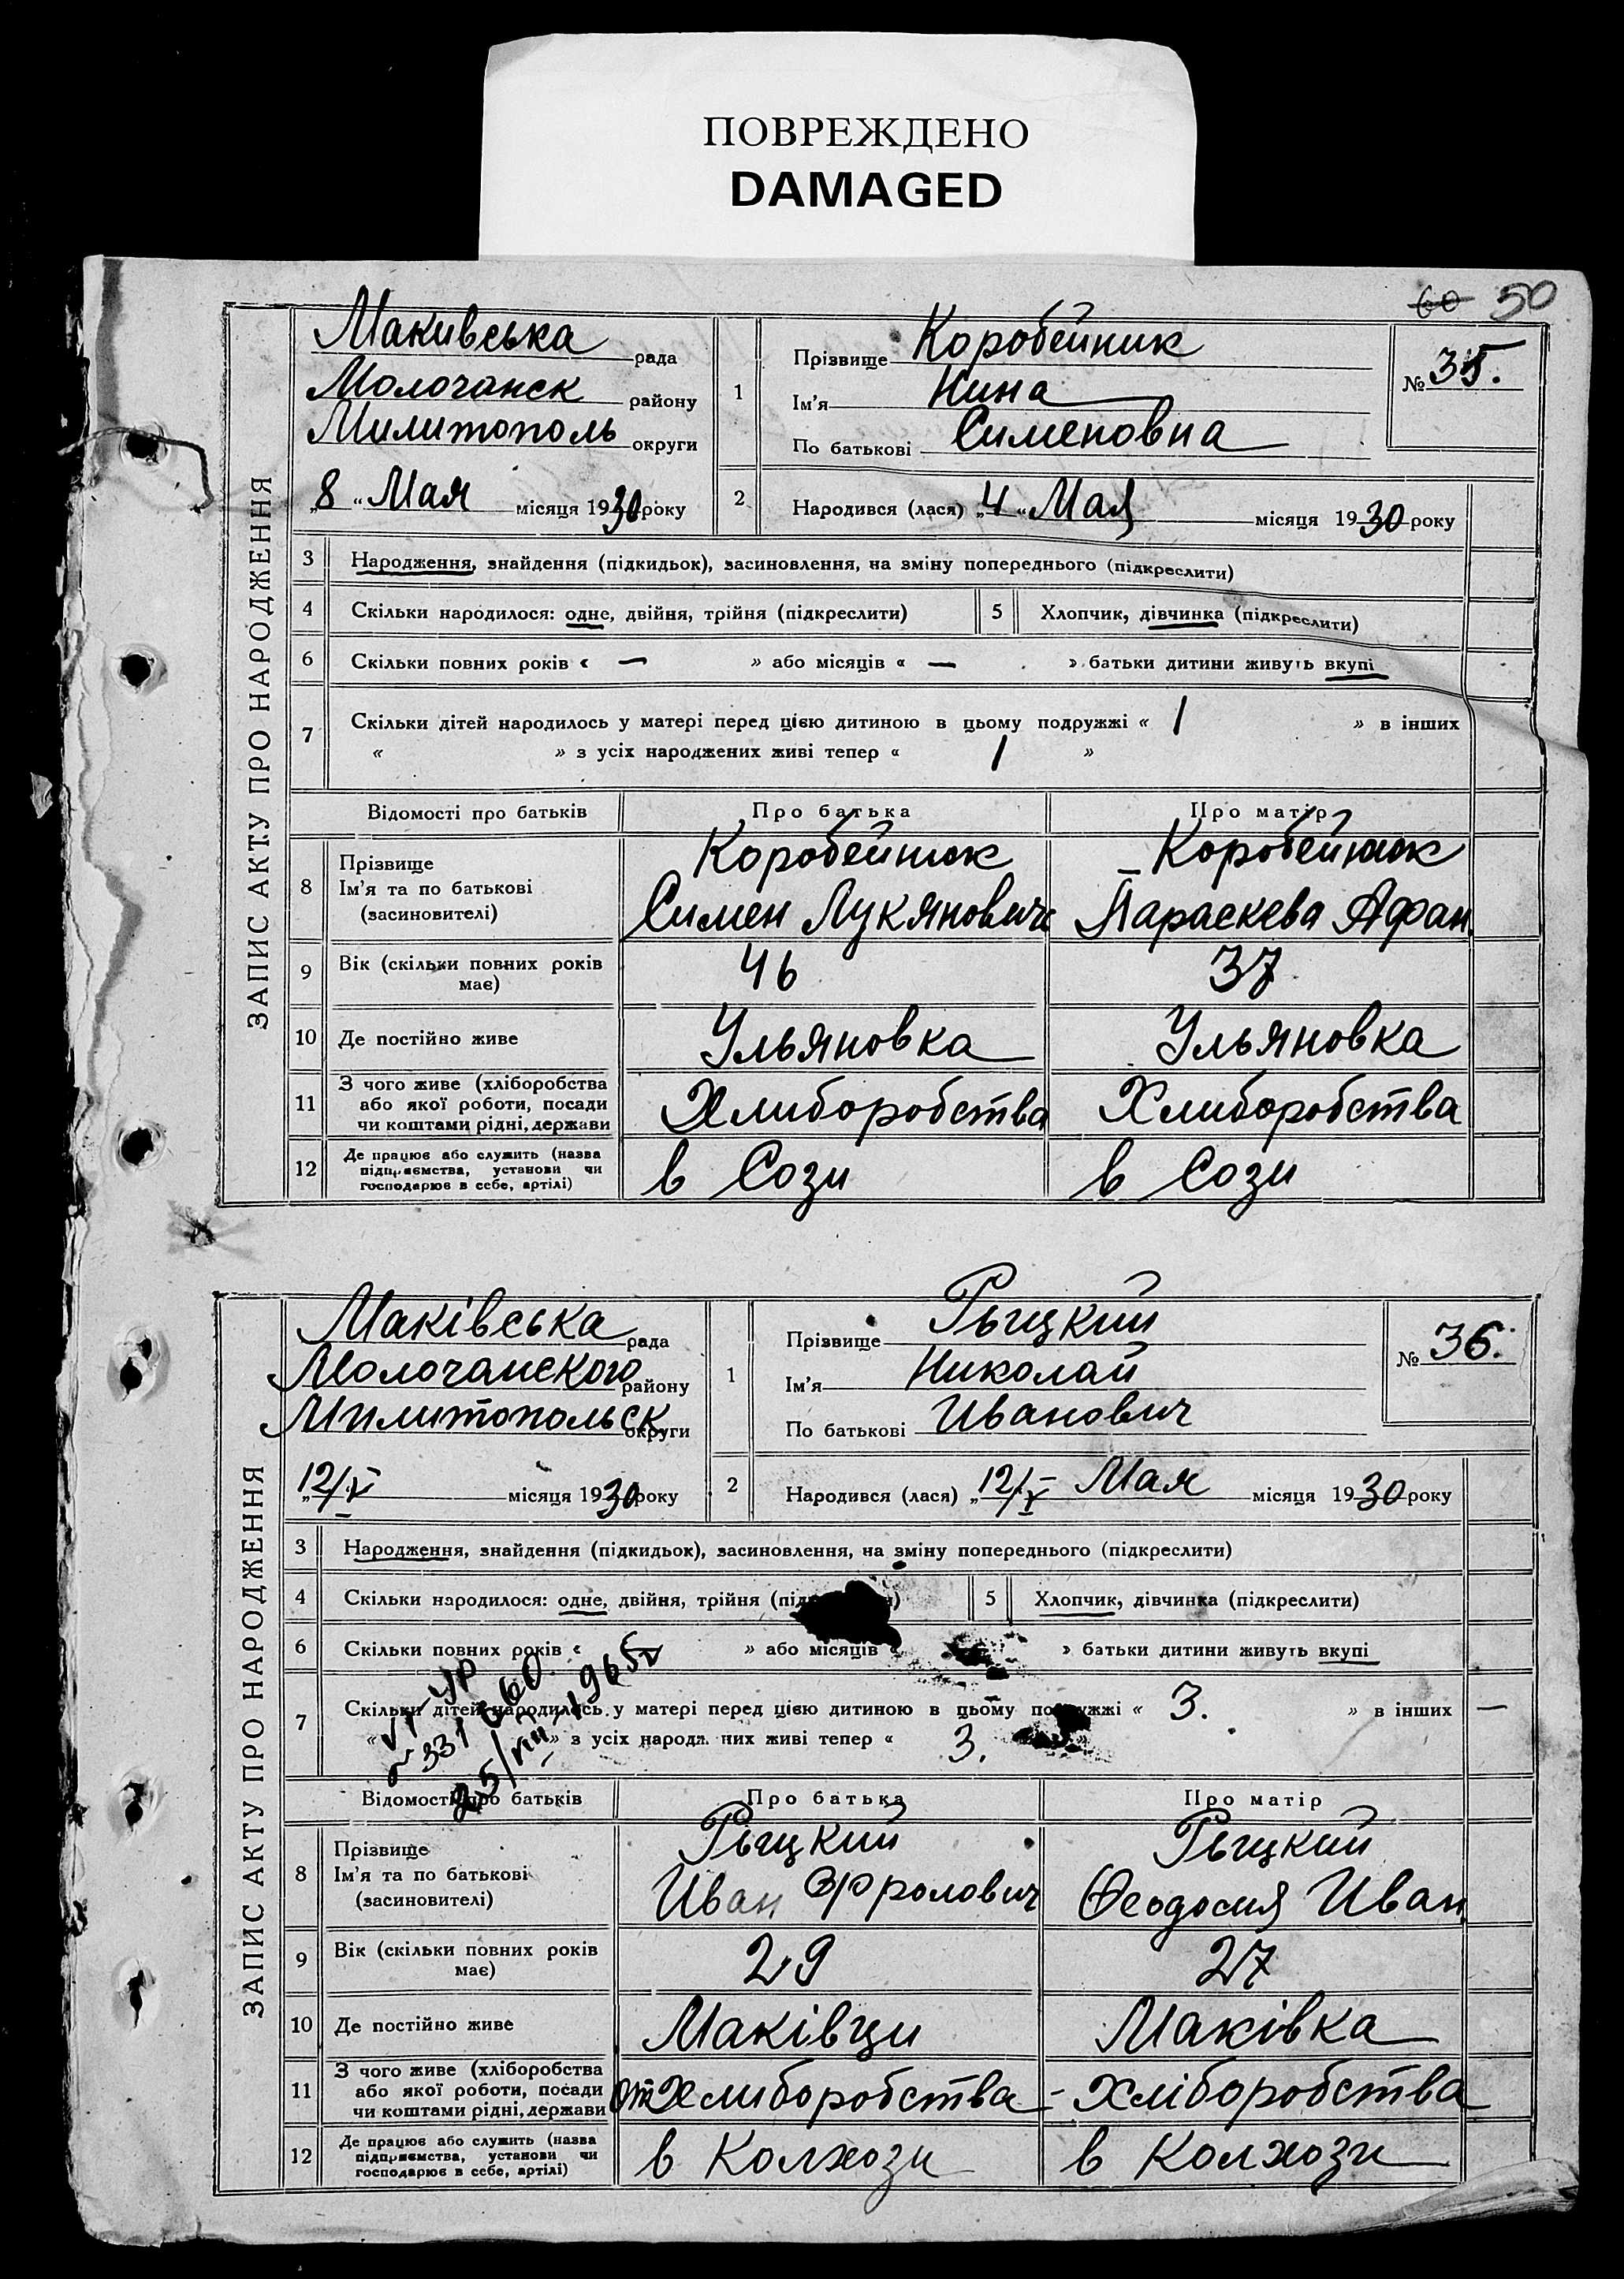 ПОВРЕЖДЕНО
DAMAGED
60 50
ЗАПИС АКТУ ПРО НАРОДЖЕННЯ
Макивська рада
Молочанск району
Милитополь округи
„8 “ Мая місяця 1930 року
1 Прізвище Коробейник
Ім'я Нина
По батькові Сименовна
№ 35.
2 Народився (лася) „4 “ Мая місяця 1930 року
3 Народження, знайдення (підкидьок), засиновлення, на зміну попереднього (підкреслити)
4 Скільки народилося: одне, двійня, трійня (підкреслити) 5 Хлопчик, дівчинка (підкреслити)
6 Скільки повних років « — » або місяців « — » батьки дитини живуть вкупі
7 Скільки дітей народилось у матері перед цією дитиною в цьому подружжі « 1 » в інших
« » з усіх народжених живі тепер « 1 »
Відомості про батьків Про батька Про матір
8 Прізвище Коробейник Коробейник
Ім'я та по батькові
(засиновителі) Симен Лукянович Параскева Афан.
9 Вік (скільки повних років має) 46 37
10 Де постійно живе Ульяновка Ульяновка
11 З чого живе (хліборобства
або якої роботи, посади
чи коштами рідні, держави Хлиборобства Хлиборобства
12 Де працює або служить (назва
підприємства, установи чи
господарює в себе, артілі) в Сози в Сози
ЗАПИС АКТУ ПРО НАРОДЖЕННЯ
Маківська рада
Молочанського району
Милитопольск округи
„12/V місяця 1930 року
1 Прізвище Рыцкий
Ім'я Николай
По батькові Иванович
№ 36.
2 Народився (лася) „12/V Мая місяця 1930 року
3 Народження, знайдення (підкидьок), засиновлення, на зміну попереднього (підкреслити)
4 Скільки народилося: одне, двійня, трійня 5 Хлопчик, дівчинка (підкреслити)
6 Скільки повних років « » або місяців « » батьки дитини живуть вкупі
7 Скільки дітей народилось у матері перед цією дитиною в цьому подружжі « 3. » в інших —
« » з усіх народжених живі тепер « 3. »
25/VIII-1965
Відомості про батьків Про батька Про матір
8 Прізвище Рыцкий Рыцкий
Ім'я та по батькові
(засиновителі) Иван Фролович Феодосия Иван
9 Вік (скільки повних років має) 29 27
10 Де постійно живе Маківци Маківка
11 З чого живе (хліборобства
або якої роботи, посади
чи коштами рідні, держави от Хлиборобства - Хліборобства
12 Де працює або служить (назва
підприємства, установи чи
господарює в себе, артілі) в Колхози в Колхози